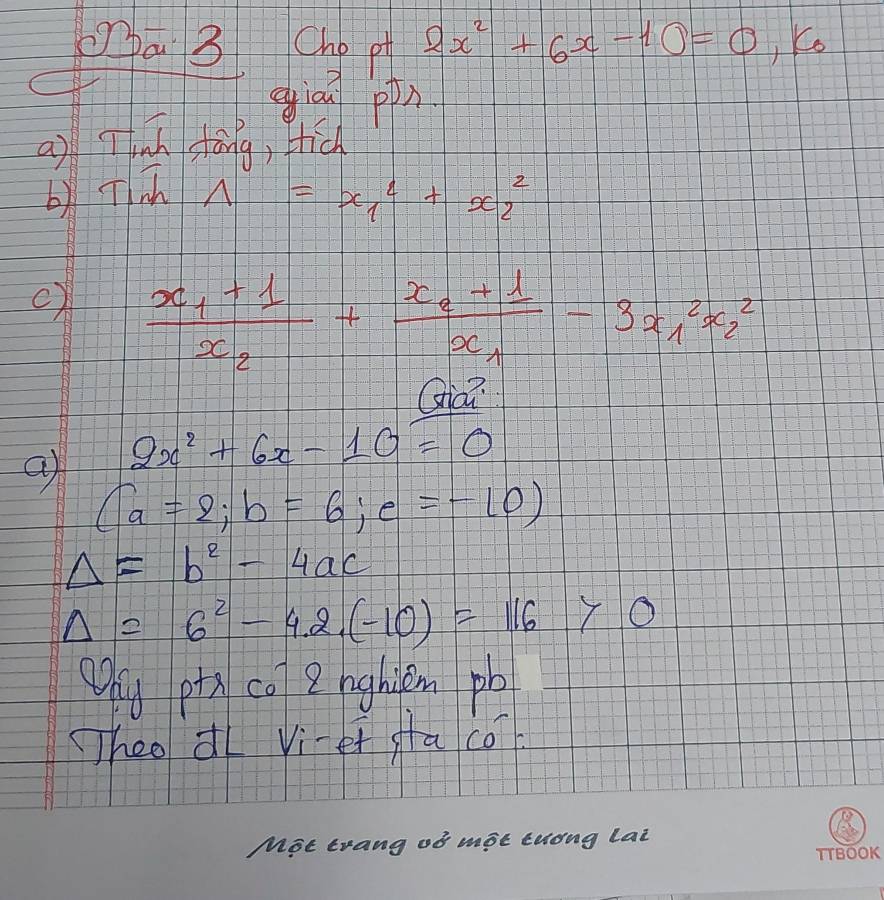 Bài 3 Cho pt 2x² + 6x - 10 = 0, Ko
giải ptr.
a) Tính tổng, tích
b) Tính A = x₁² + x₂²
c) (x₁ + 1)/x₂ + (x₂ + 1)/x₁ - 3x₁²x₂²
Giải:
a) 2x² + 6x - 10 = 0
(a = 2; b = 6; c = -10)
Δ = b² - 4ac
Δ = 6² - 4.2.(-10) = 116 > 0
Vậy ptr có 2 nghiệm pb
Theo đL Vi-ét ta có:
Một trang vở một tương lai
TTBOOK